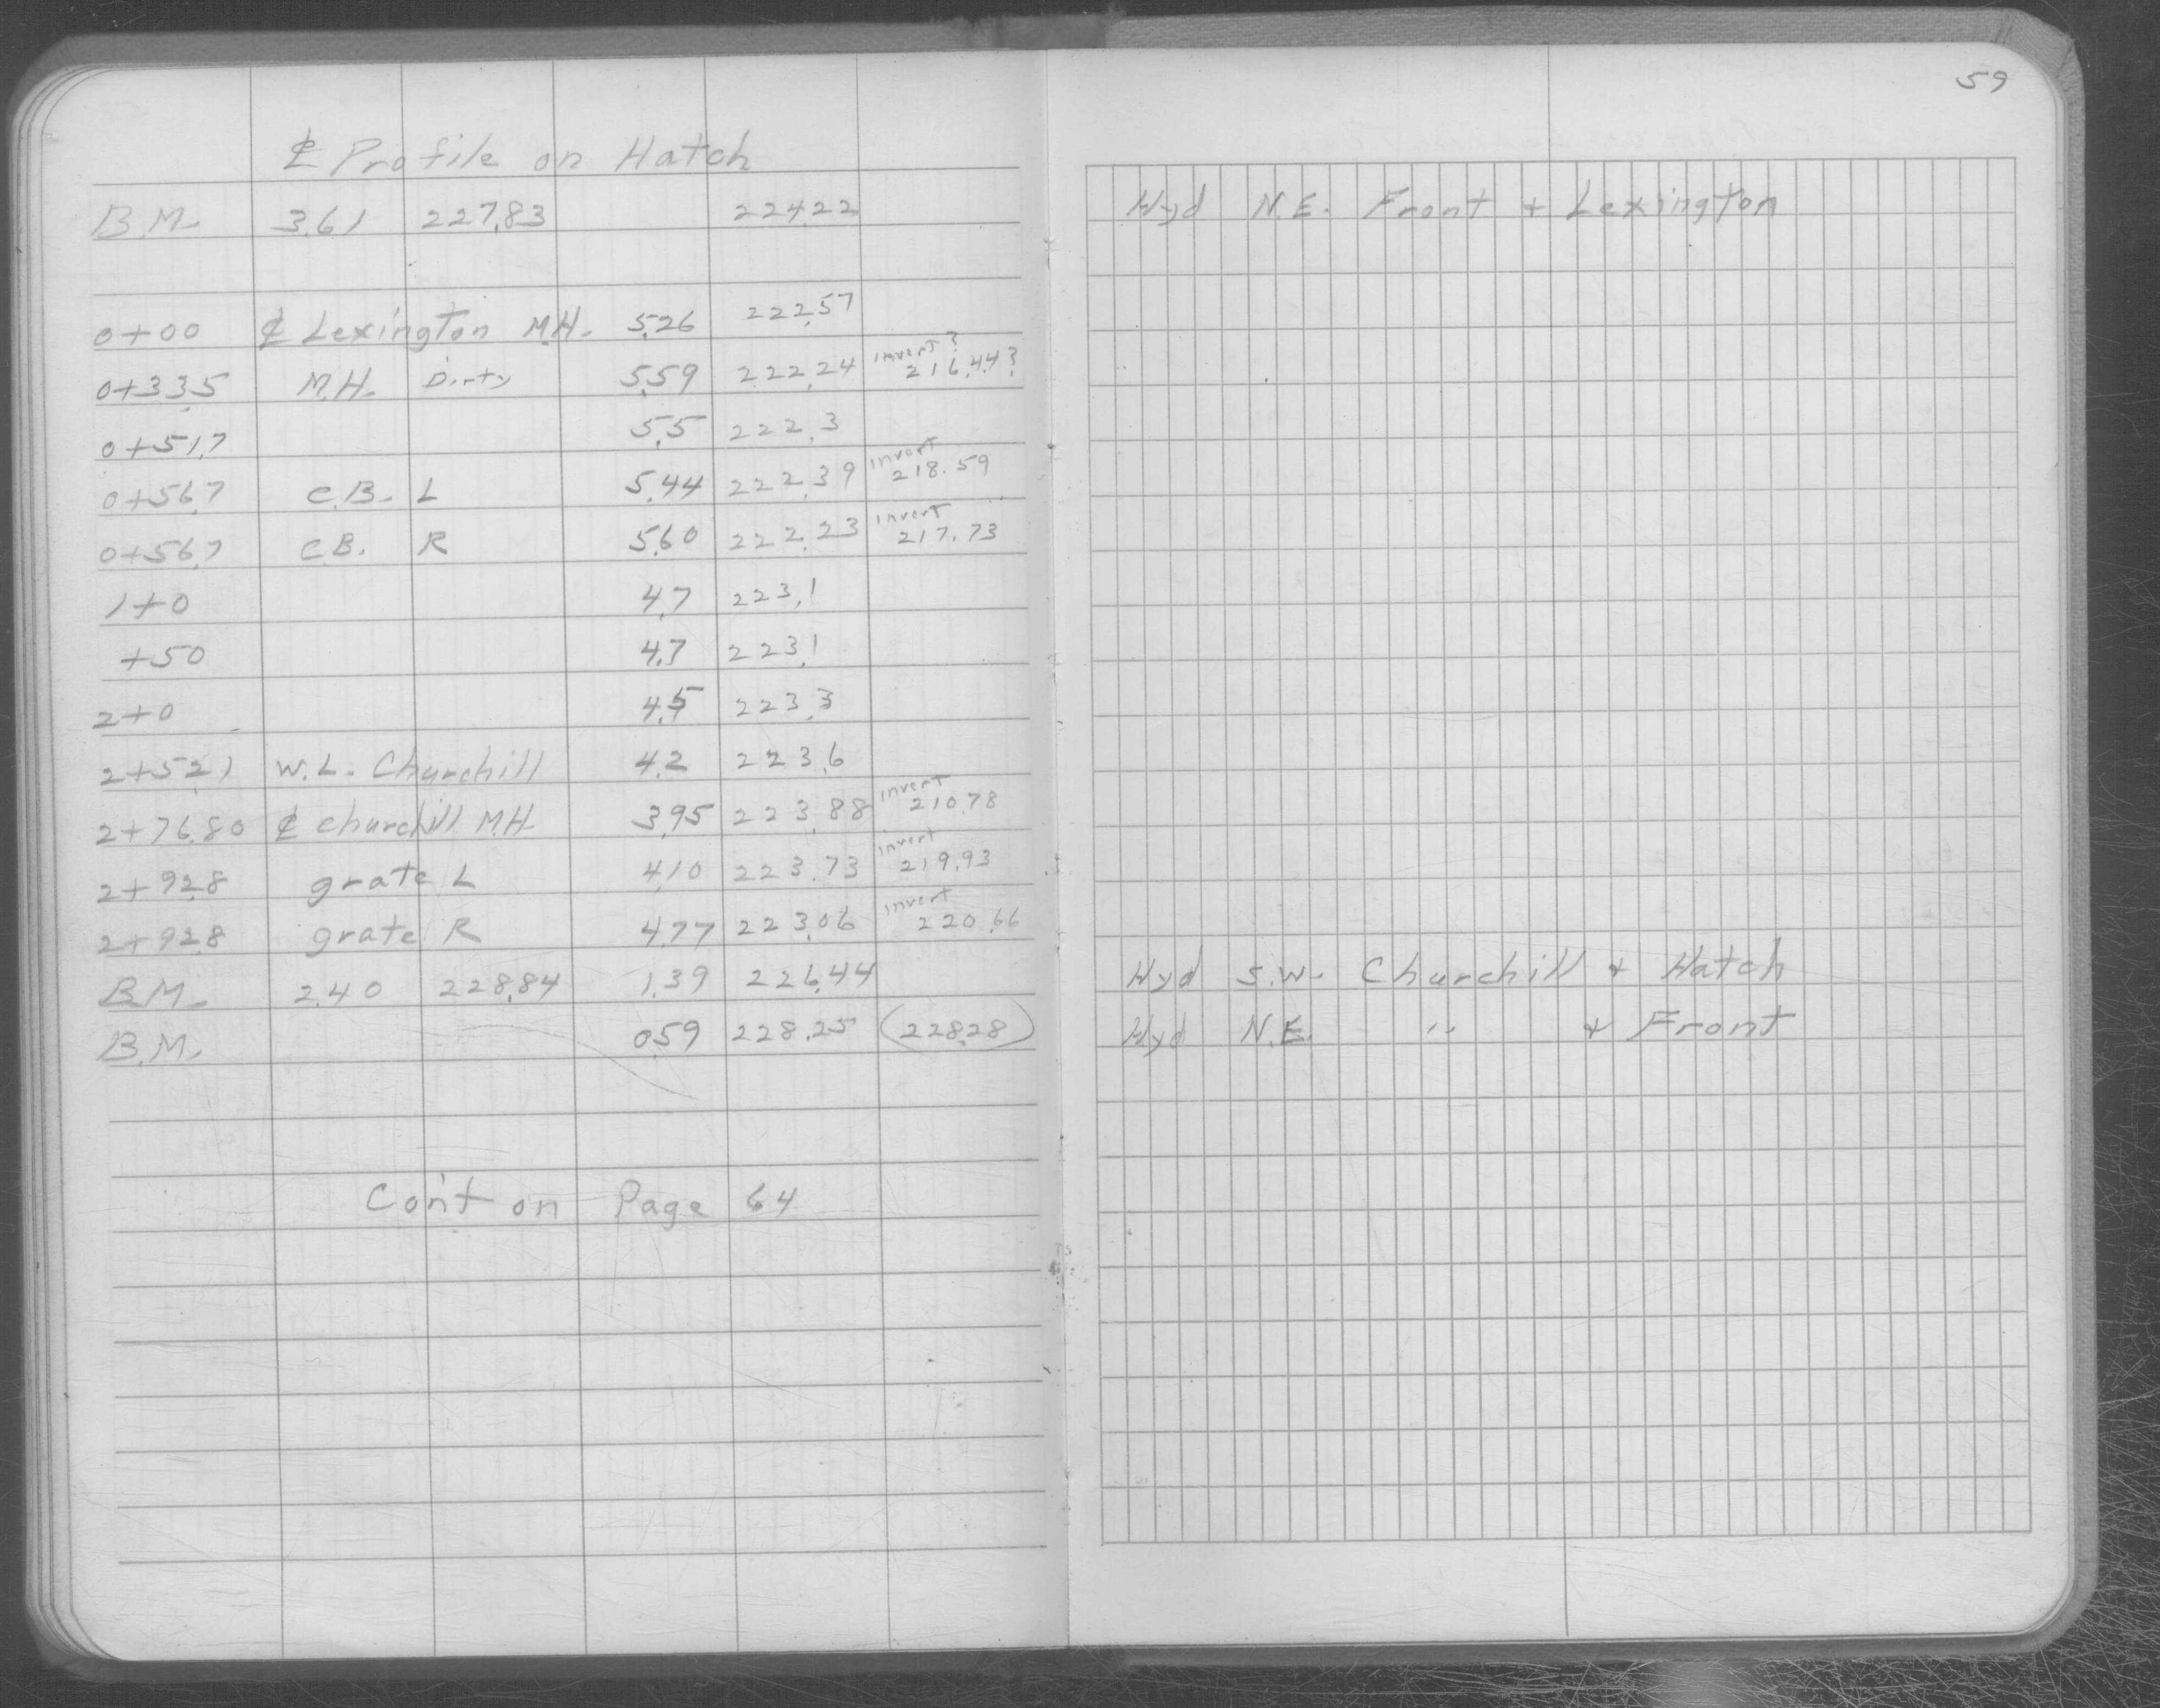 59
℄ Profile on Hatch
B.M. 3.61 227.83 224.22 Hyd N.E. Front + Lexington
0+00 ℄ Lexington M.H. 5.26 222.57
0+33.5 M.H. Dirty 5.59 222.24 invert? 216.44?
0+51.7 5.5 222.3
0+56.7 C.B. L 5.44 222.39 invert 218.59
0+56.7 C.B. R 5.60 222.23 invert 217.73
1+0 4.7 223.1
+50 4.7 223.1
2+0 4.5 223.3
2+52.1 W.L. Churchill 4.2 223.6
2+76.80 ℄ churchill M.H. 3.95 223.88 invert 210.78
2+92.8 grate L 4.10 223.73 invert 219.93
2+92.8 grate R 4.77 223.06 invert 220.66
B.M. 2.40 228.84 1.39 226.44 Hyd S.W. Churchill + Hatch
B.M. 0.59 228.25 (228.28) Hyd N.E. " + Front
Con't on Page 64